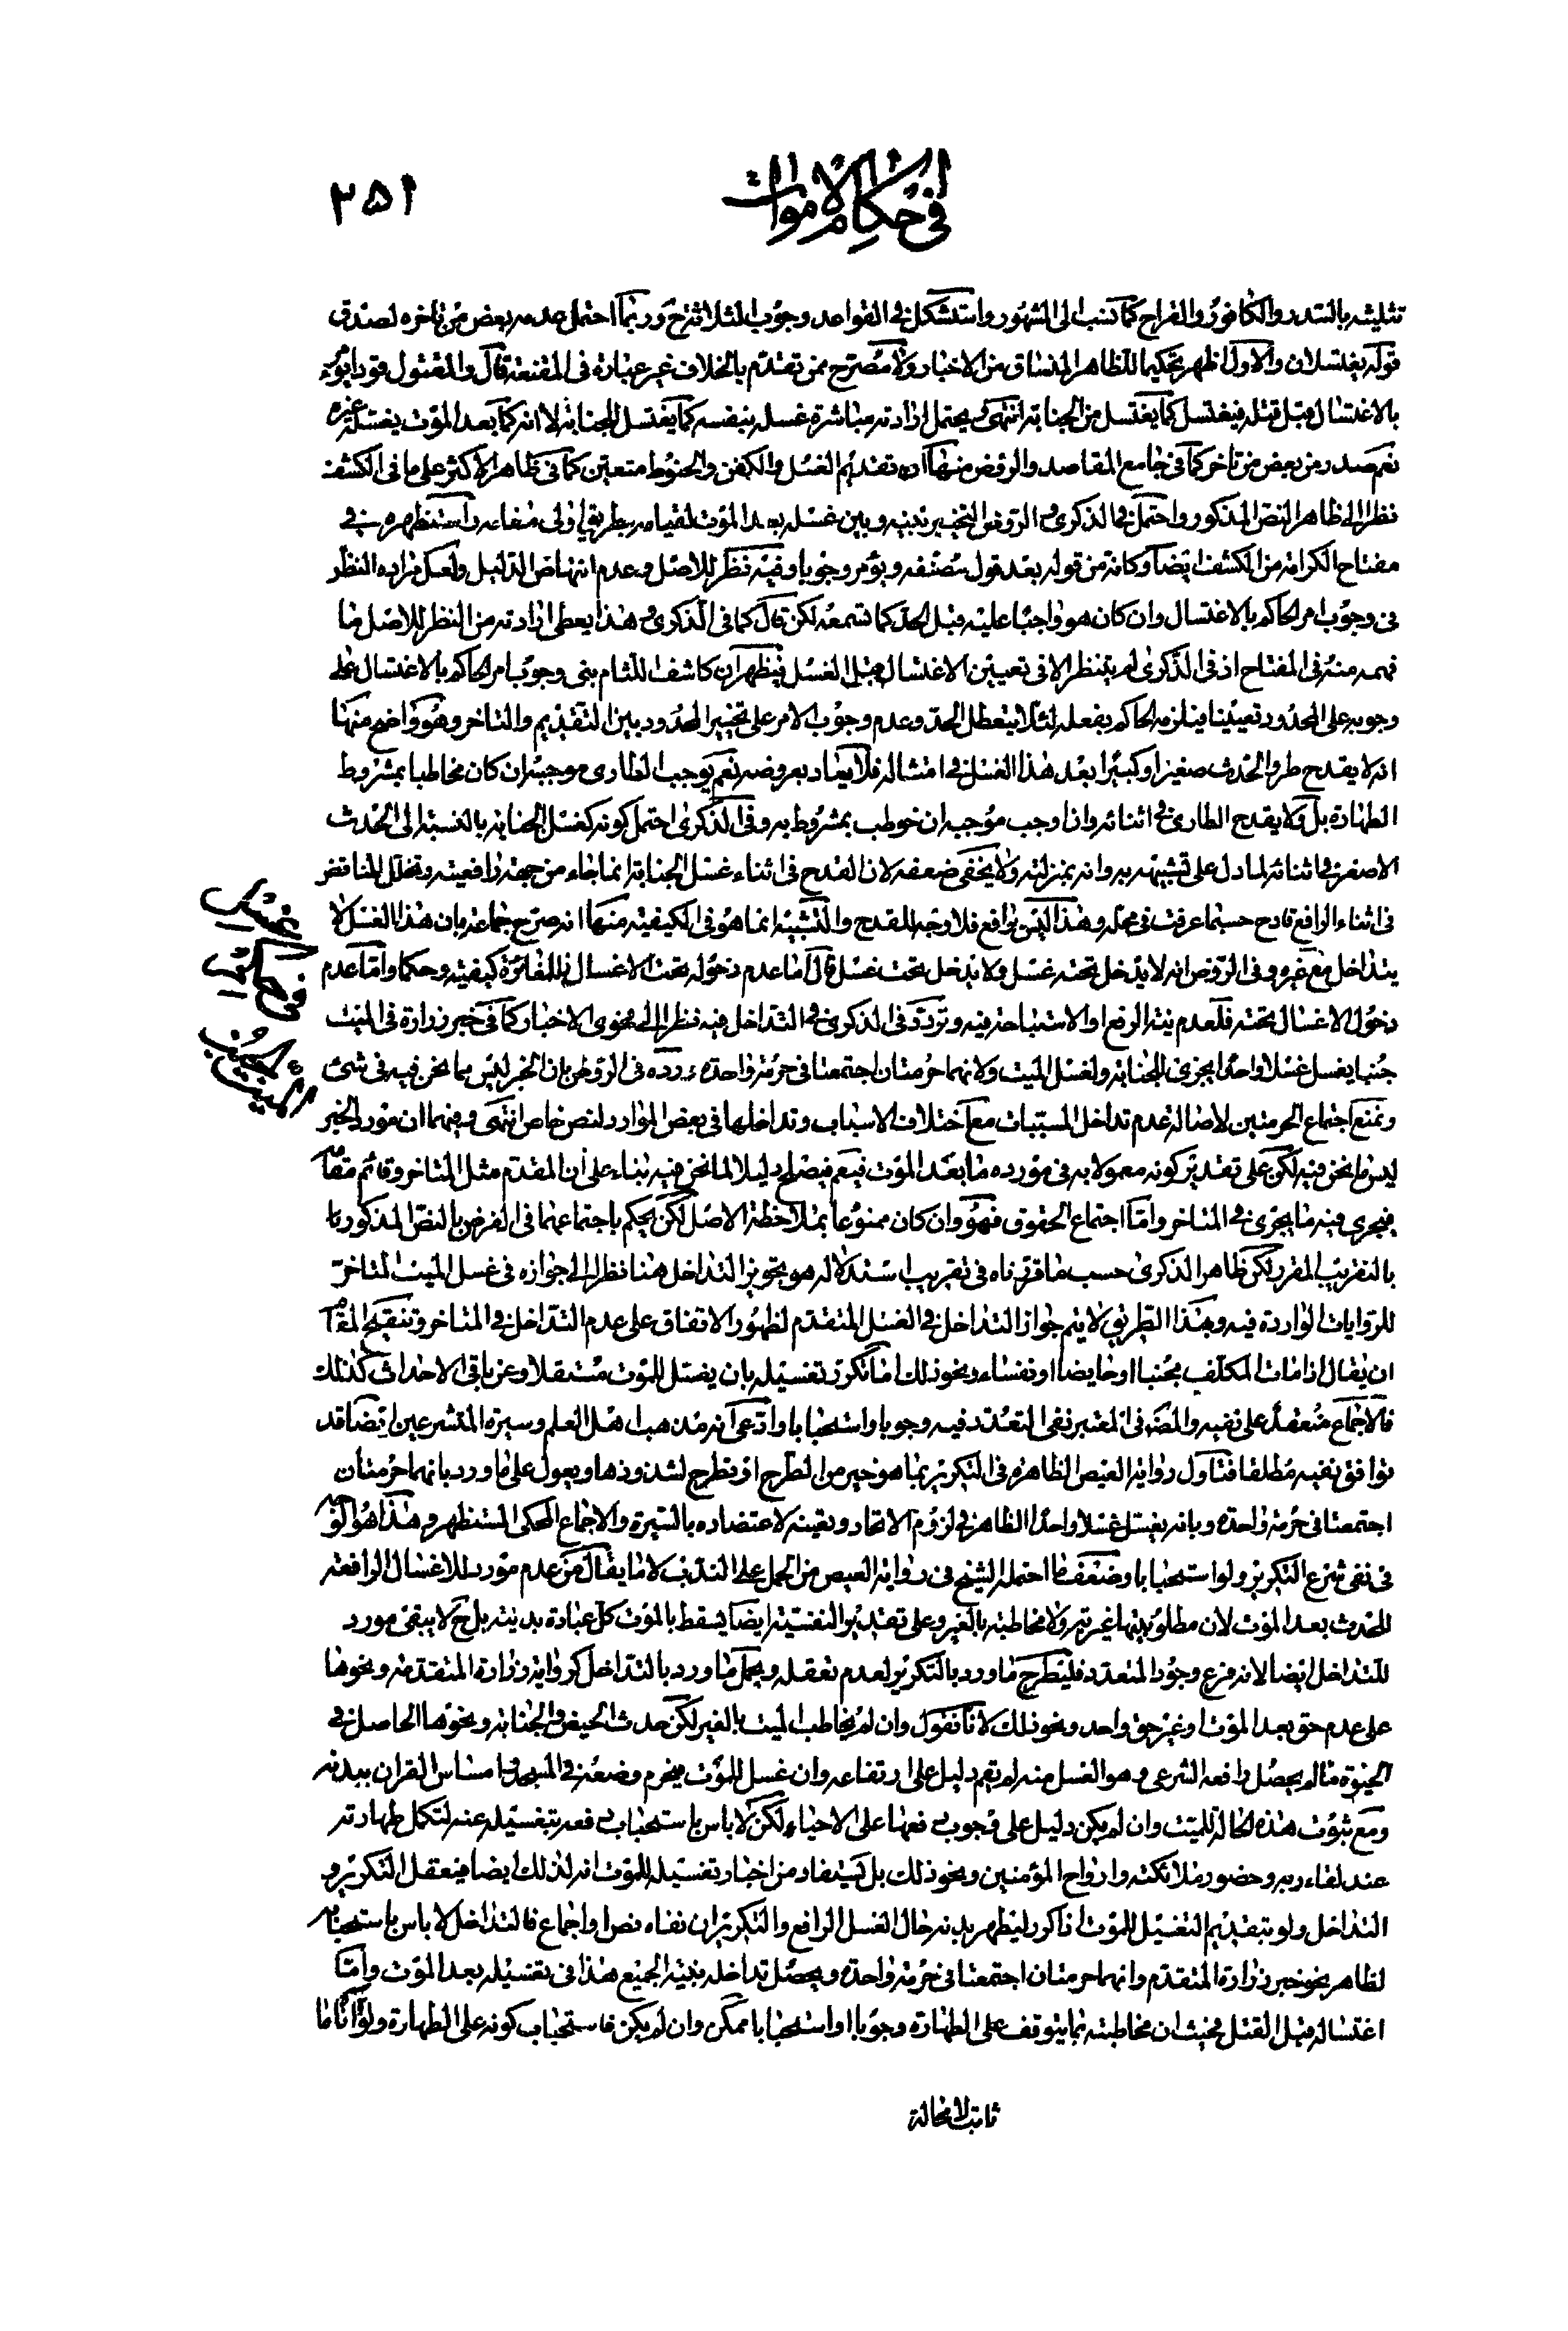 في احكام الاموات
٣٥١
تثليثه بالسدر والكافور والقراح كما نسب الى المشهور واستشكل في القواعد وجوب الثلاثة ح وربما احتمل عدمه بعض من تاخره لصدق
قوله يغتسلان والاول اظهر تحكيما للظاهر المنساق من الاخبار ولا مصرح ممن تقدم بالخلاف غير عبارة في المقنعة قال والمقتول قودا يؤمر
بالاغتسال قبل قتله فيغتسل كما يغتسل من الجنابة انتهى يحتمل ارادته مباشرة غسله بنفسه كما يغتسل للجنابة لا انه كما بعد الموت يغسله غيره
نعم صدر من بعض من تاخر كما في جامع المقاصد والروض منها ان تقديم الغسل والكفن والحنوط متعين كما في ظاهر الاكثر على ما في الكشف
نظرا الى ظاهر النص المذكور واحتمل في الذكرى و الروض التخيير بينه وبين غسله بعد الموت لقيامه بطريق اولى مقامه واستظهره في
مفتاح الكرامة من الكشف ايضا وكانه من قوله بعد قول مصنفه ويؤمر وجوبا وفيه نظر للاصل وعدم انتهاض الدليل ولعل مراده النظر
في وجوب امر الحاكم بالاغتسال وان كان هو واجبا عليه قبل الحد كما تسمعه لكن قال كما في الذكرى وهذا يعطى ارادته من النظر للاصل ما
فهمه منه في المفتاح اذ في الذكرى لم ينظر الا في تعيين الاغتسال قبل الغسل فيظهر ان كاشف اللثام بنى وجوب امر الحاكم بالاغتسال على
وجوبه على المحدود تعيينا فيلزمه الحاكم بفعله لئلا يتعطل الحد وعدم وجوب الامر على تخيير المحدود بين التقديم والتاخر وهو واضح منها
انه لا يقدح طرو الحدث صغيرا وكبيرا بعد هذا الغسل في امتثاله فلا يعاد بعروضه نعم يوجب الطارى موجبه ان كان مخاطبا بمشروط
الطهارة بل ولا يقدح الطارى في اثنائه وان اوجب موجبه ان خوطب بمشروط به وفي الذكرى احتمل كونه كغسل الجنابة بالنسبة الى الحدث
الاصغر في اثنائه لما دل على تشبيهه به وانه بمنزلته ولا يخفى ضعفه لان القدح في اثناء غسل الجنابة انما جاء من جهة رافعيته وتخلل المناقض
في اثناء الرافع قادح حسبما عرفت في محله وهذا ليس برافع فلا وجه للقدح والتشبيه انما هو في الكيفية منها انه صرح جماعة بان هذا الغسل لا
يتداخل مع غيره وفي الروض انه لا يدخل تحته غسل ولا يدخل تحت غسل قال اما عدم دخوله تحت الاغسال فللمغائرة كيفية وحكما واما عدم
دخول الاغسال تحته فلعدم نية الرفع او الاستباحة فيه وتردد في الذكرى في التداخل فيه نظرا الى فحوى الاخبار كما في خبر زرارة في الميت
جنبا يغسل غسلا واحدا يجزى للجنابة ولغسل الميت ولانهما حرمتان اجتمعتا في حرمة واحدة ورده في الروض بان الخبر ليس مما نحن فيه في شئ
ونمنع اجتماع الحرمتين لاصالة عدم تداخل المسببات مع اختلاف الاسباب وتداخلها في بعض الموارد لنص خاص انتهى وفيهما ان مورد الخبر
ليس ما نحن فيه لكن على تقدير كونه معمولا به في مورده ما بعد الموت فيصلح دليلا لما نحن فيه بناء على أن المقدم مثل المتاخر وقائم مقامه
فيجرى فيه ما يجرى في المتاخر واما اجتماع الحقوق فهو وان كان ممنوعا بملاحظة الاصل لكن يحكم باجتماعهما في الفرض بالنص المذكور
بالتقريب المقرر لكن ظاهر الذكرى حسب ما قررناه في تقريب استدلاله هو تجويز التداخل هنا نظرا الى جوازه في غسل الميت المتاخر
للروايات الواردة فيه وبهذا الطريق لا يتم جواز التداخل في الغسل المتقدم لظهور الاتفاق على عدم التداخل في المتاخر وتنقيح المقام
ان يقال اذا مات المكلف مجنبا او حايضا او نفساء ونحو ذلك اما تكرر تغسيله بان يغسل للموت مستقلا وعن باقي الاحداث كذلك
فالاجماع منعقد على نفيه والمص في المعتبر نفى التعدد فيه وجوبا واستحبابا وادعى انه مذهب اهل العلم وسيرة المتشرعين ايضا قد
توافق نفيه مطلقا فتأول رواية العيص الظاهرة في التكرير بما هو خير من الطرح او تطرح لشذوذها ويعول على ما ورد بانهما حرمتان
اجتمعتا في حرمة واحدة وبانه يغسل غسلا واحدا الظاهر في لزوم الاتحاد وتعينه لاعتضاده بالسيرة والاجماع المحكى المستظهر وهذا هو الوجه
في نفى شرع التكرير ولو استحبابا وضعف ما احتمله الشيخ في رواية العيص من الحمل على الندب لا ما يقال من عدم مورد للاغسال الرافعة
للحدث بعد الموت لان مطلوبيتها غيرية ولا مخاطبة بالغير وعلى تقدير النفسية ايضا يسقط بالموت كل عبادة بدنية بل ح لا يبقى مورد
للتداخل ايضا لانه فرع وجود المتعدد فليطرح ما ورد بالتكرير لعدم تعقله ويحمل ما ورد بالتداخل كرواية زرارة المتقدمة ونحوها
على عدم حق بعد الموت او غير حق واحد ونحو ذلك لانا نقول وان لم يخاطب الميت بالغير لكن حدث الحيض والجنابة ونحوها الحاصل في
الحيوة ما لم يحصل رافعه الشرعى وهو الغسل منه لم يقم دليل على ارتفاعه وان غسل للموت فيحرم وضعه في المسجد وامساس القران ببدنه
ومع ثبوت هذه الحالة للميت وان لم يكن دليل على وجوب رفعها على الاحياء لكن لا باس باستحباب رفعه بتغسيله عنه لتكمل طهارته
عند لقاء ربه وحضور ملائكته وارواح المؤمنين ونحو ذلك بل يستفاد من اخبار تغسيله للموت انه لذلك ايضا فيعقل التكرير و
التداخل ولو بتقديم التغسيل للموت اذ المراد تطهير بدنه حال الغسل الرافع والتكرير ان نفاه نص او اجماع فالتداخل لا باس باستحبابه
لظاهر نحو خبر زرارة المتقدم وانهما حرمتان اجتمعتا في حرمة واحدة ويحصل تداخله بنية الجميع هذا في تغسيله بعد الموت واما
اغتساله قبل القتل فحيث ان مخاطبته بما يتوقف على الطهارة وجوبا او استحبابا ممكن وان لم يكن فاستحباب كونه على الطهارة ولو انا ما
ثابت لا محالة
غسل